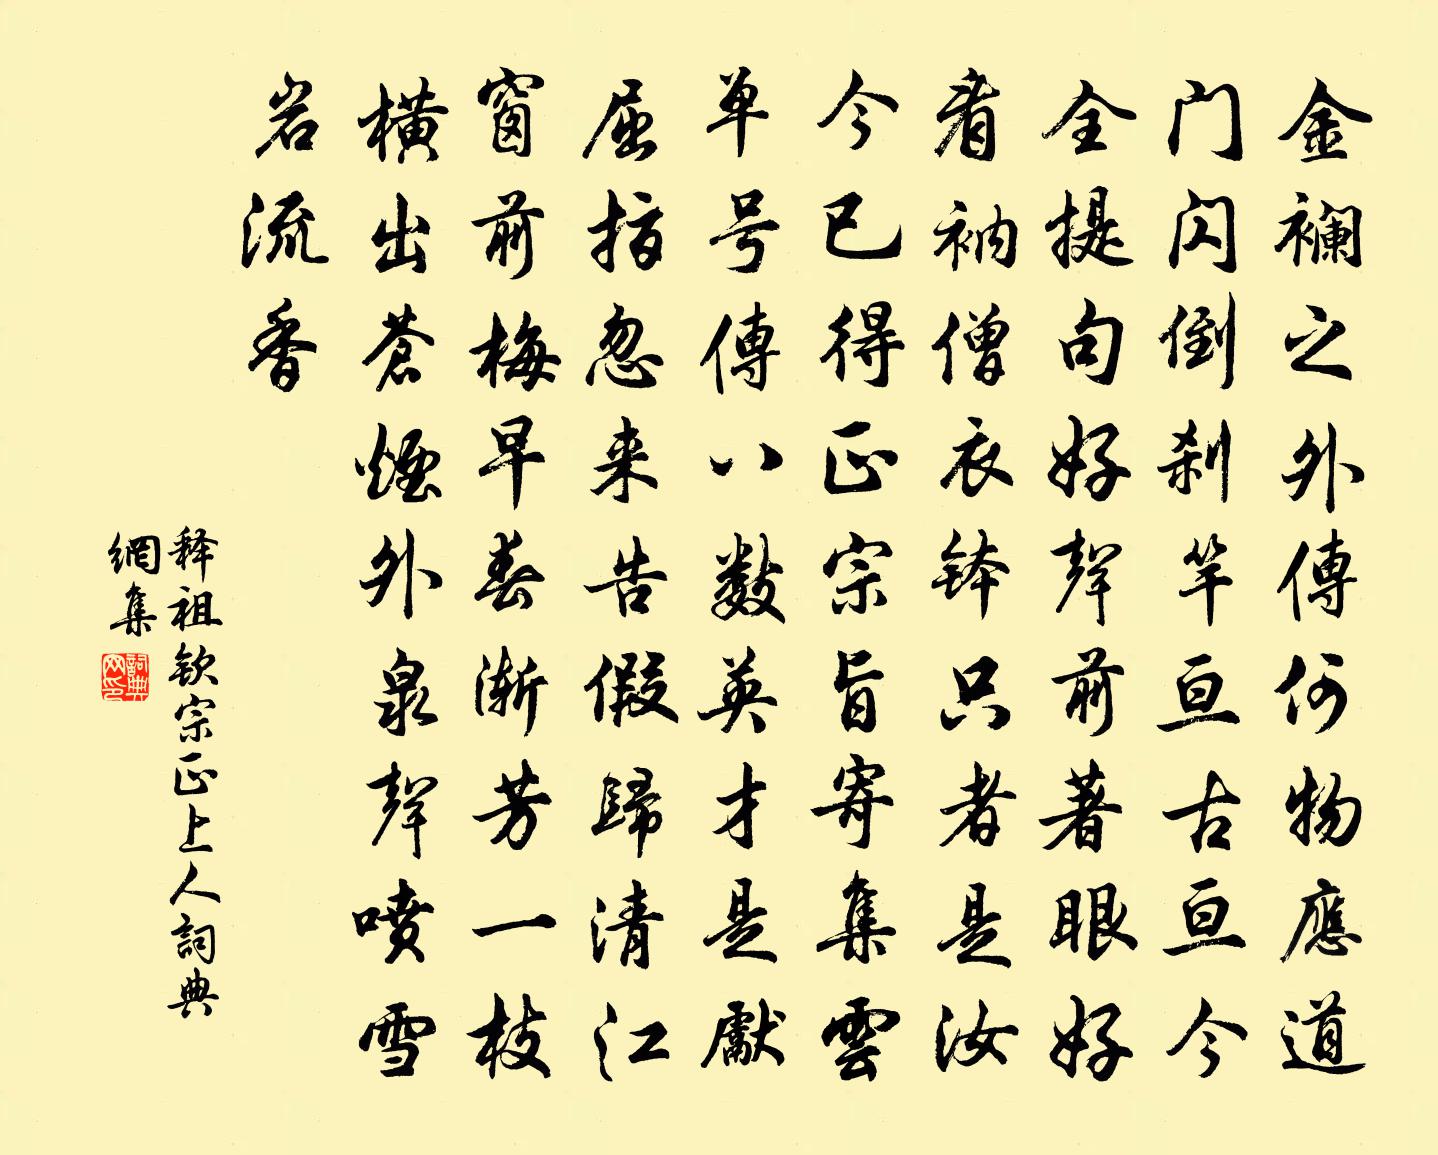 金襕之外傳何物應道
门闪倒刹竿亘古亘今
全提句好聲前著眼好
看衲僧衣钵只者是汝
今已得正宗旨寄集雲
单号傳八数英才是獻
屈指忽来告假歸清江
窗前梅早春渐芳一枝
横出蒼煙外泉聲喷雪
岩流香
释祖钦宗正上人詞典
網集
詞典网印